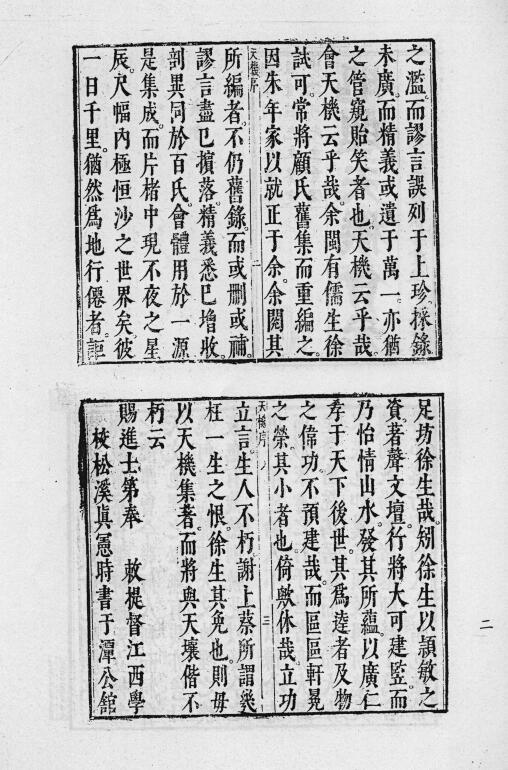 之濫。而謬言誤列于上珍。採錄
未廣。而精義或遺于萬一。亦猶
之管窺貽笑者也。天機云乎哉。
會天機云乎哉。余閩有儒生徐
試可。常將顧氏舊集而重編之。
因朱年家以就正于余。余閱其
天機序
二
所編者。不仍舊錄。而或刪或補。
謬言盡已擯落。精義悉已增收。
剖異同於百氏。會體用於一源
是集成。而片楮中現不夜之星
辰。尺幅內極恒沙之世界矣。彼
一日千里。猶然為地行僊者。詎
足坊徐生哉。矧徐生以頴敏之
資。著聲文壇。行將大可建豎。而
乃怡情山水。發其所蘊。以廣仁
孝于天下後世。其爲達者及物
之偉功。不預建哉。而區區軒冕
之榮。其小者也。倚歟休哉。立功
天機序
三
立言。生人不朽。謝上蔡所謂幾
枉一生之恨。徐生其免也。則毋
以天機集著。而將與天壤偕不
朽云
賜進士第奉 敕提督江西學
校松溪眞憲時書于潭公舘
二